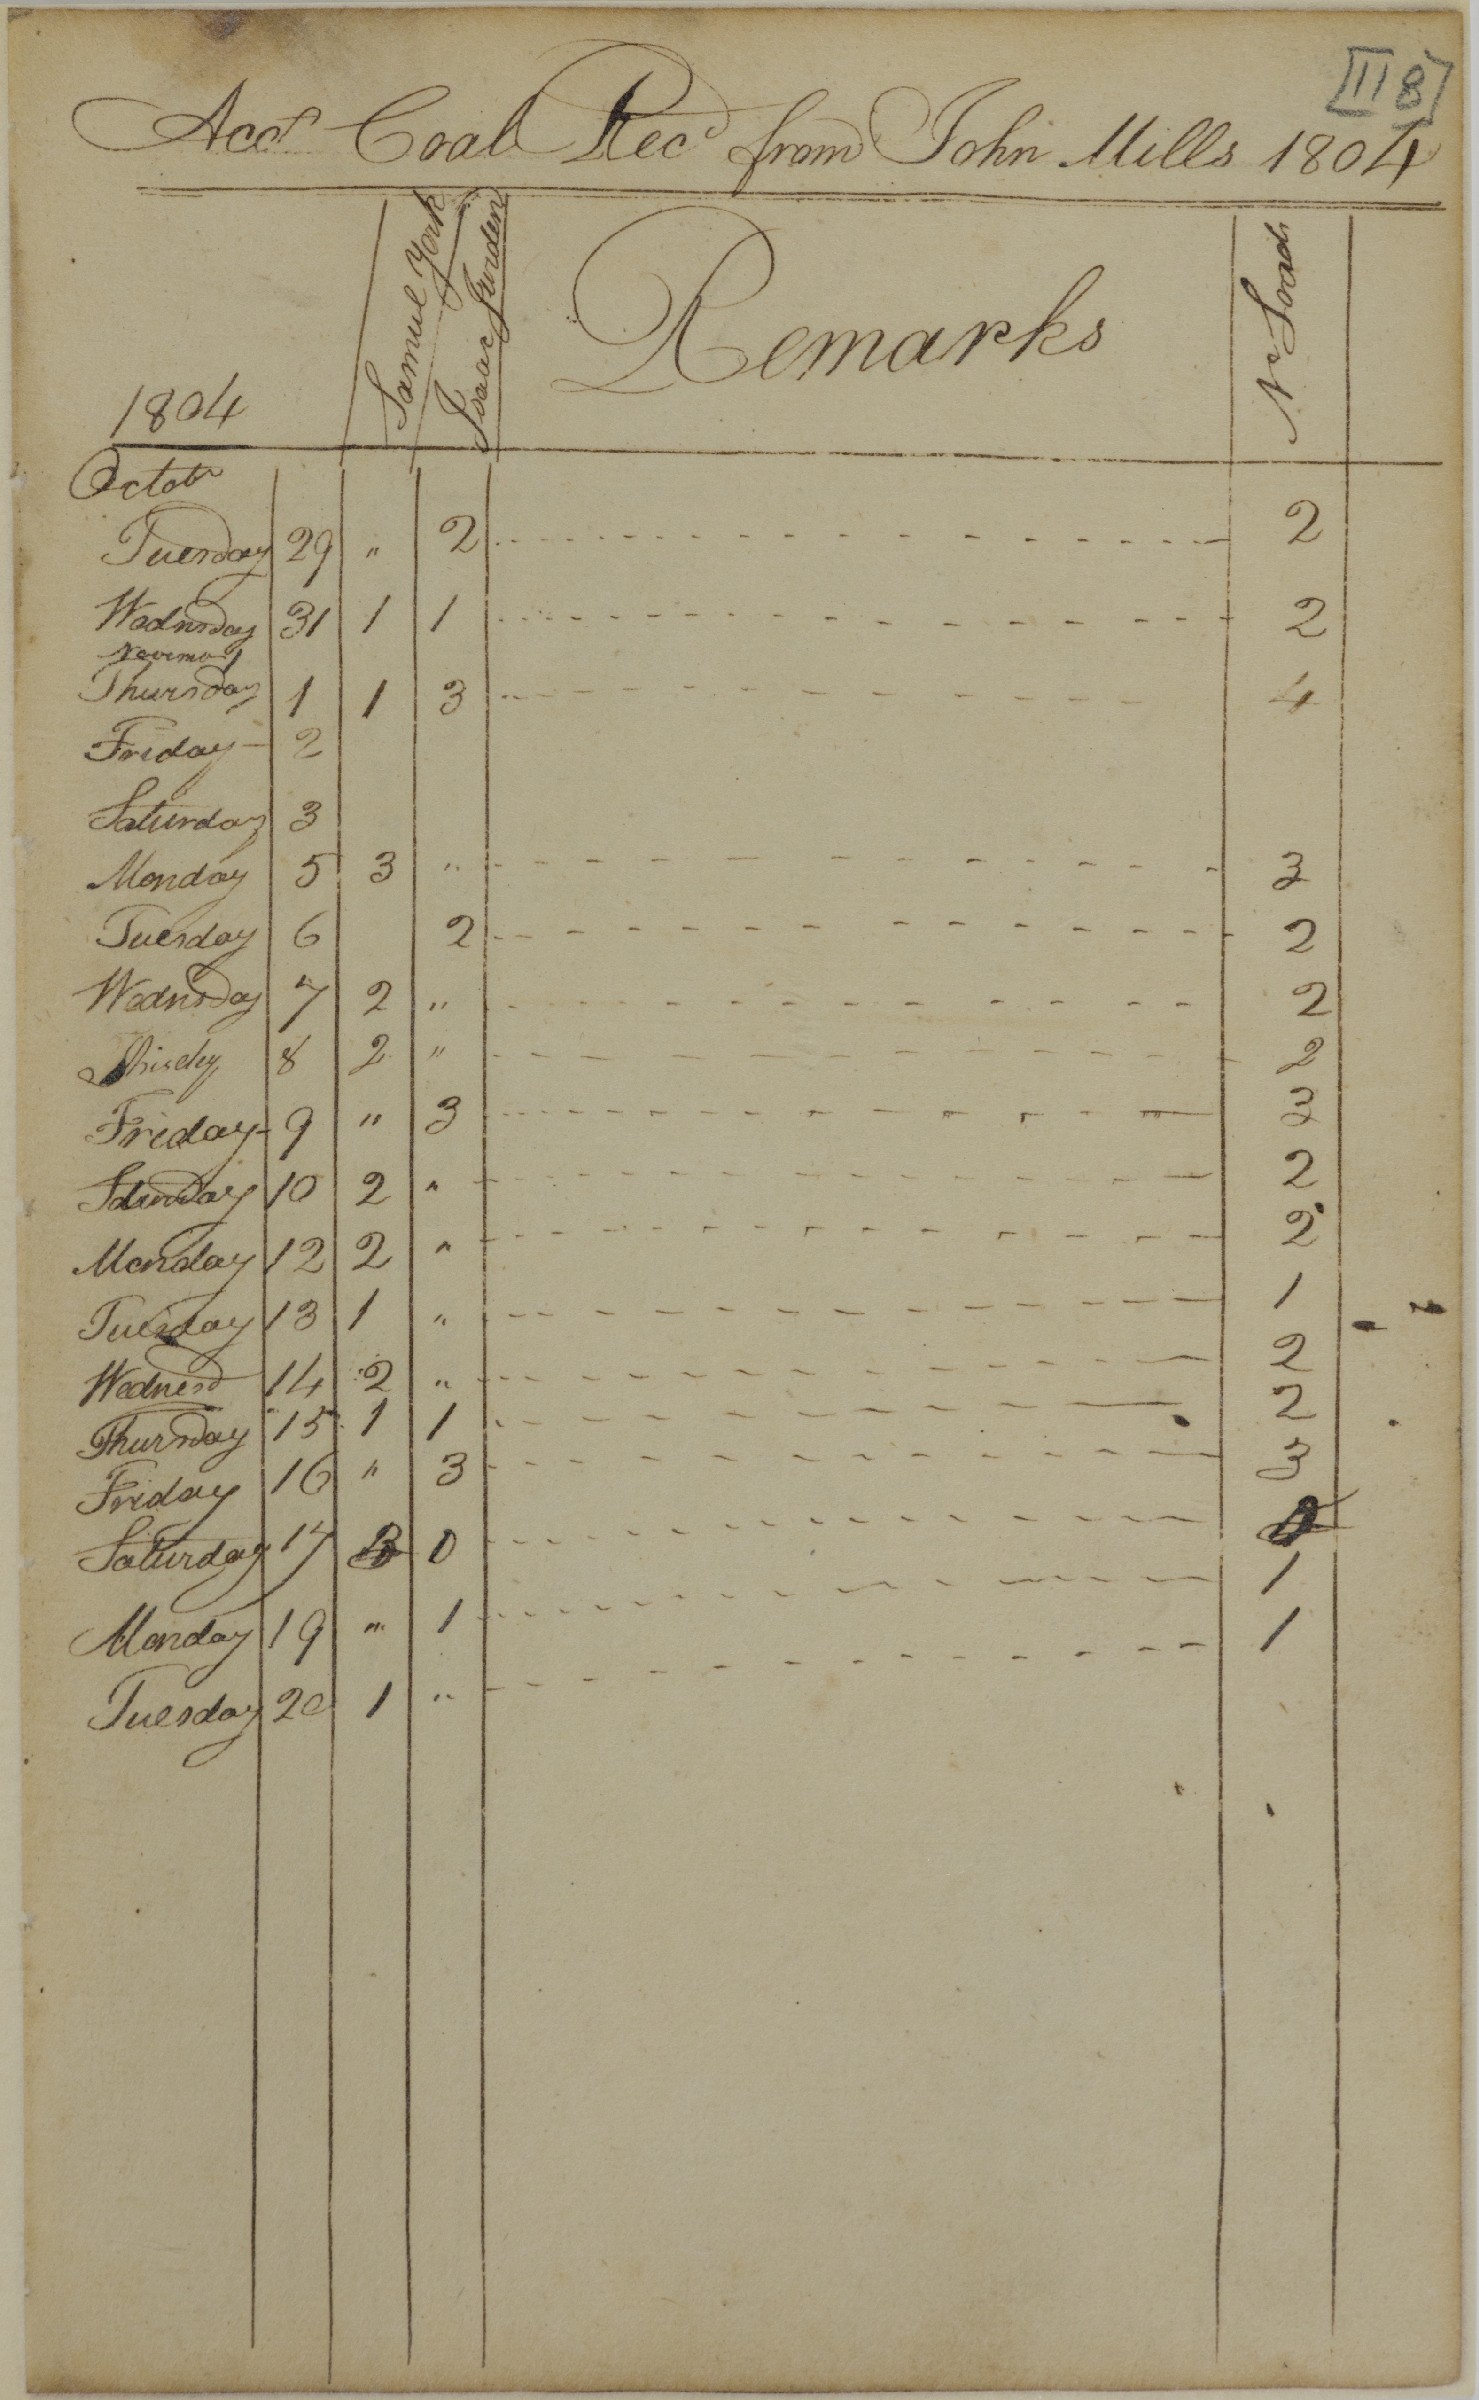 [II 8]
Acct Coal Recd from John Mills 1804
1804 Samuel York Isaac Jurden Remarks No Loads
Octobr
Tuesday 29 " 2 2
Wednsday 31 1 1 2
Novembr
Thursday 1 1 3 4
Friday 2
Saturday 3
Monday 5 3 " 3
Tuesday 6 2 2
Wednsday 7 2 " 2
8 2 " 2
Friday 9 " 3 3
Saturday 10 2 " 2
Monday 12 2 " 2
Tuesday 13 1 " 1
Wednesd 14 2 " 2
Thursday 15 1 1 2
Friday 16 " 3 3
Saturday 17 0
Monday 19 " 1 1
Tuesday 20 1 " 1